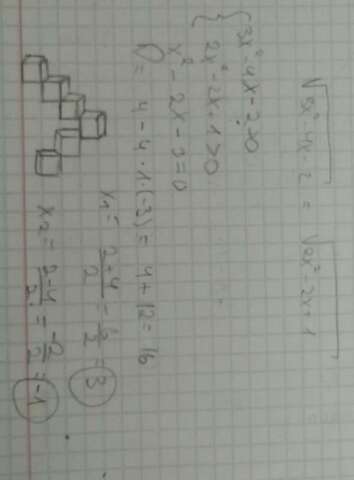 √3x²-4x-2 = √2x²-2x+1
{ 3x²-4x-2>0
2x²-2x+1>0
x² - 2x - 3 = 0
D = 4 - 4 · 1 · (-3) = 4 + 12 = 16
x₁ = 2+4/2 = 6/2 = 3
x₂ = 2-4/2 = -2/2 = -1